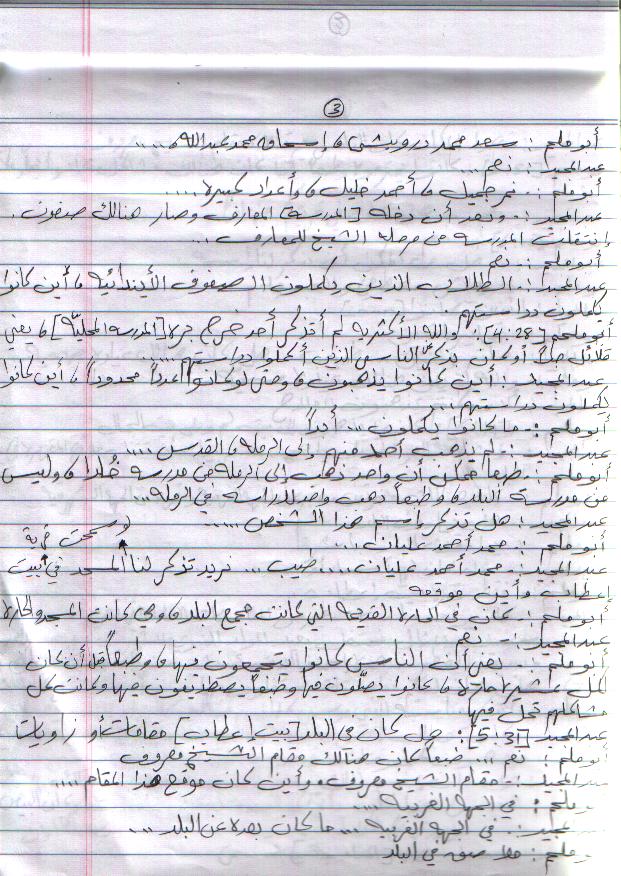 3
أبو ملحم : سعد محمد درويش، وإسحاق محمد عبدالله، ....
عبد المجيد : نعم ...
أبو ملحم : نمر جميل، أحمد خليل، وأعداد كبيرة ....
عبد المجيد : وبعد أن دخلت [المدرسة] المعارف وصار هنالك صفوف.
إنتقلت المدرسة من مرحلة الشيخ للمعارف ...
أبو ملحم : نعم
عبد المجيد : الطلاب الذين يكملون الصفوف الأبتدائية، أين كانوا
يكملون دراستهم.
أبو ملحم [4:28] : والله الأكثرية لم أتذكر أحد خرج برا [المدرسة المحليّة]، يعني
قلائل جداً أو كان بذكر الناس الذين أكملوا دراستهم ....
عبد المجيد : أين كانوا يذهبون، وحتى لو كانوا عدداً محدوداً، أين كانوا
يكملون دراستهم ...
أبو ملحم : ما كانوا يكملون ... أبداً
عبد المجيد : لم يذهب أحد منهم إلى الرملة، القدس ....
أبو ملحم : طبعاً ممكن أن واحد ذهب إلى الرملة من مدرسة خُلدا، وليس
من مدرسة البلد، وطبعاً ذهب واحد للدراسة في الرملة...
عبد المجيد : هل تذكر إسم هذا الشخص ......
لو سمحت قرية
أبو ملحم : محمد أحمد عليان ....
عبد المجيد : محمد أحمد عليان .... طيب ... نريد تذكر لنا المسجد في بيت
إعطاب وأين موقعه
أبو ملحم : كان في الحارة القديمة التي كانت مجمع البلد، وهي كانت المسجد والحارة
عبد المجيد : نعم
أبو ملحم : يعني أن الناس كانوا يتجمعون فيها، وطبعاً قبل أن كان
لكل عشيرة حارة، كانوا يصلّون فيها وطبعاً يصطديفون فيها وكانت كل
مشاكلهم تحل فيها.
عبد المجيد [5:31] : هل كان في البلد [بيت إعطاب] مقامات أو زاويات
أبو ملحم : نعم ... طبعاً كان هنالك مقام الشيخ معروف
عبد المجيد : مقام الشيخ معروف .. وأين كان موقع هذا المقام ....
أبو ملحم : في الجهة الغربية ...
عبد المجيد : في الجهة الغربية ... ما كان بعده عن البلد ...
أبو ملحم : في البلد